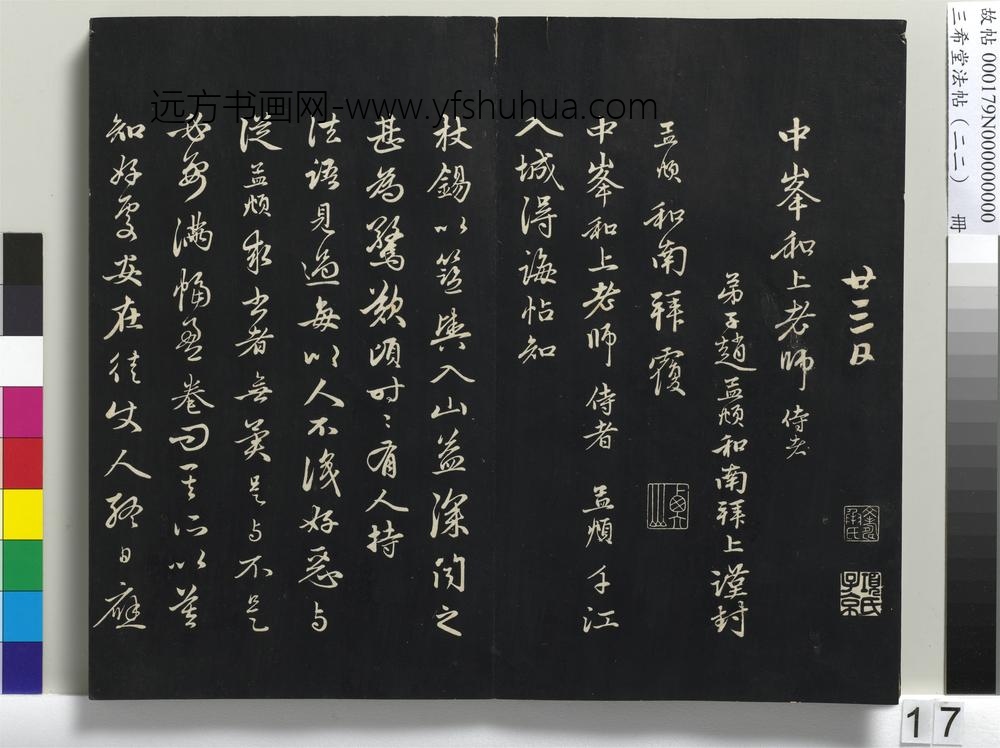 廿三日
中峯和上老師 侍者
弟子趙孟頫和南拜上謹封
孟頫和南拜覆
中峯和上老師 侍者 孟頫 千江
入城得誨帖知
杖錫以籃輿入山益深聞之
甚為驚歎頃時〻有人持
法語見過每以人不識好惡与
從孟頫求書者無異是与不是
必要滿幅盈卷問其所以莫
知好處安在徒使人終日應
項氏子京
远方书画网-www.yfshuhua.com
故帖 000179N000000000
三希堂法帖（二二） 冊
17